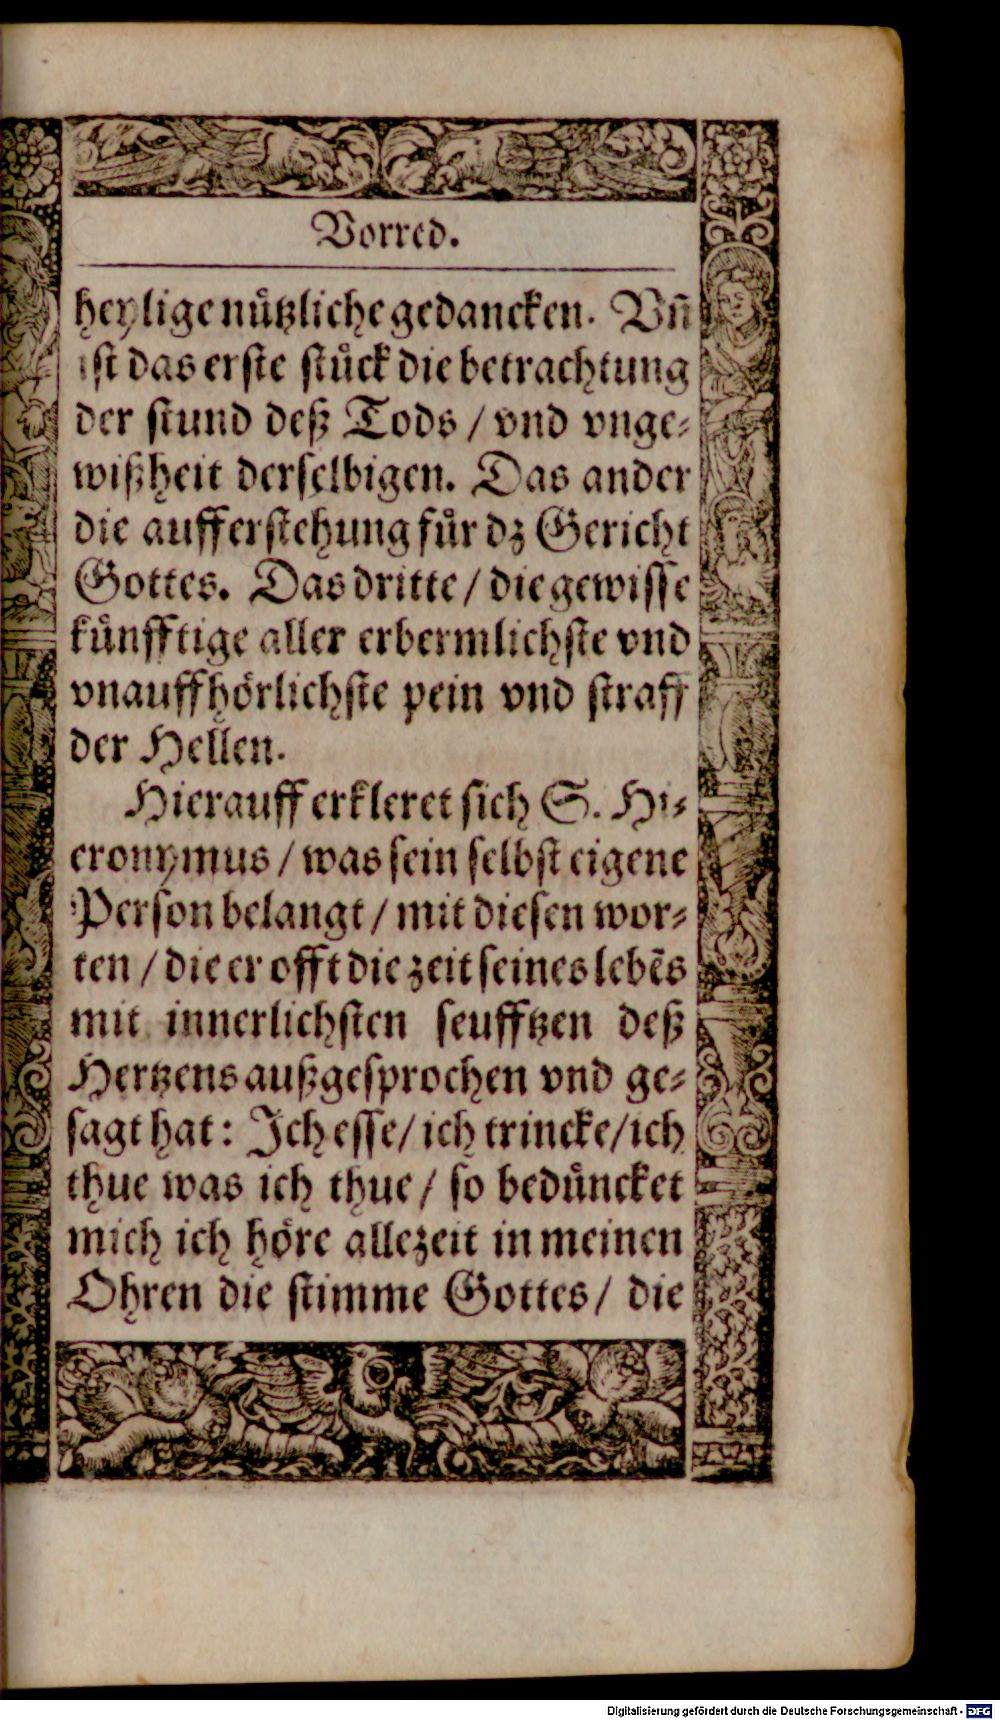 Vorred.
heylige nuͤtzliche gedancken. Vñ
ist das erste stuͤck die betrachtung
der stund deß Tods / vnd vnge⸗
wißheit derselbigen. Das ander
die aufferstehung fuͤr dz Gericht
Gottes. Das dritte / die gewisse
kuͤnfftige aller erbermlichste vnd
vnauffhoͤrlichste pein vnd straff
der Hellen.
Hierauff erkleret sich S. Hi⸗
eronymus / was sein selbst eigene
Person belangt / mit diesen wor⸗
ten / die er offt die zeit seines lebẽs
mit innerlichsten seufftzen deß
Hertzens außgesprochen vnd ge⸗
sagt hat: Ich esse / ich trincke / ich
thue was ich thue / so beduͤncket
mich ich hoͤre allezeit in meinen
Ohren die stimme Gottes / die
Digitalisierung gefördert durch die Deutsche Forschungsgemeinschaft - DFG